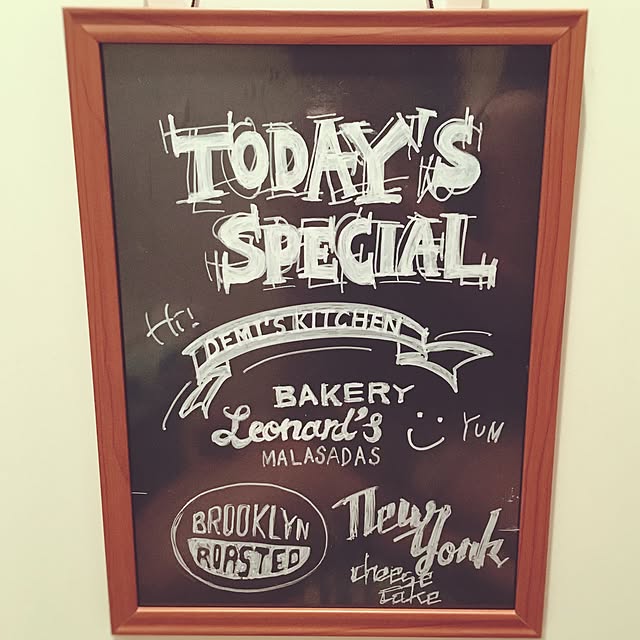 TODAY'S
SPECIAL
Hi!
DEMI'S KITCHEN
BAKERY
Leonard's
YUM
MALASADAS
BROOKLYN
ROASTED
New
York
cheese
cake